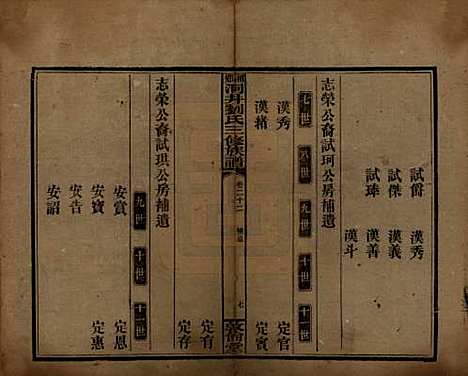 試爵 漢秀
試傑 漢義
試瑋 漢善
漢斗
志榮公裔試珂公房補遺
七世 八世 九世 十世 十一世
漢秀 定官
漢緒 定賓
湘鄉洞井劉氏三修族譜 卷二十二 補遺 七 敦睦堂
定有
定存
志榮公裔試琪公房補遺
九世 十世 十一世
安賞 定恩
安寶 定惠
安告
安詔